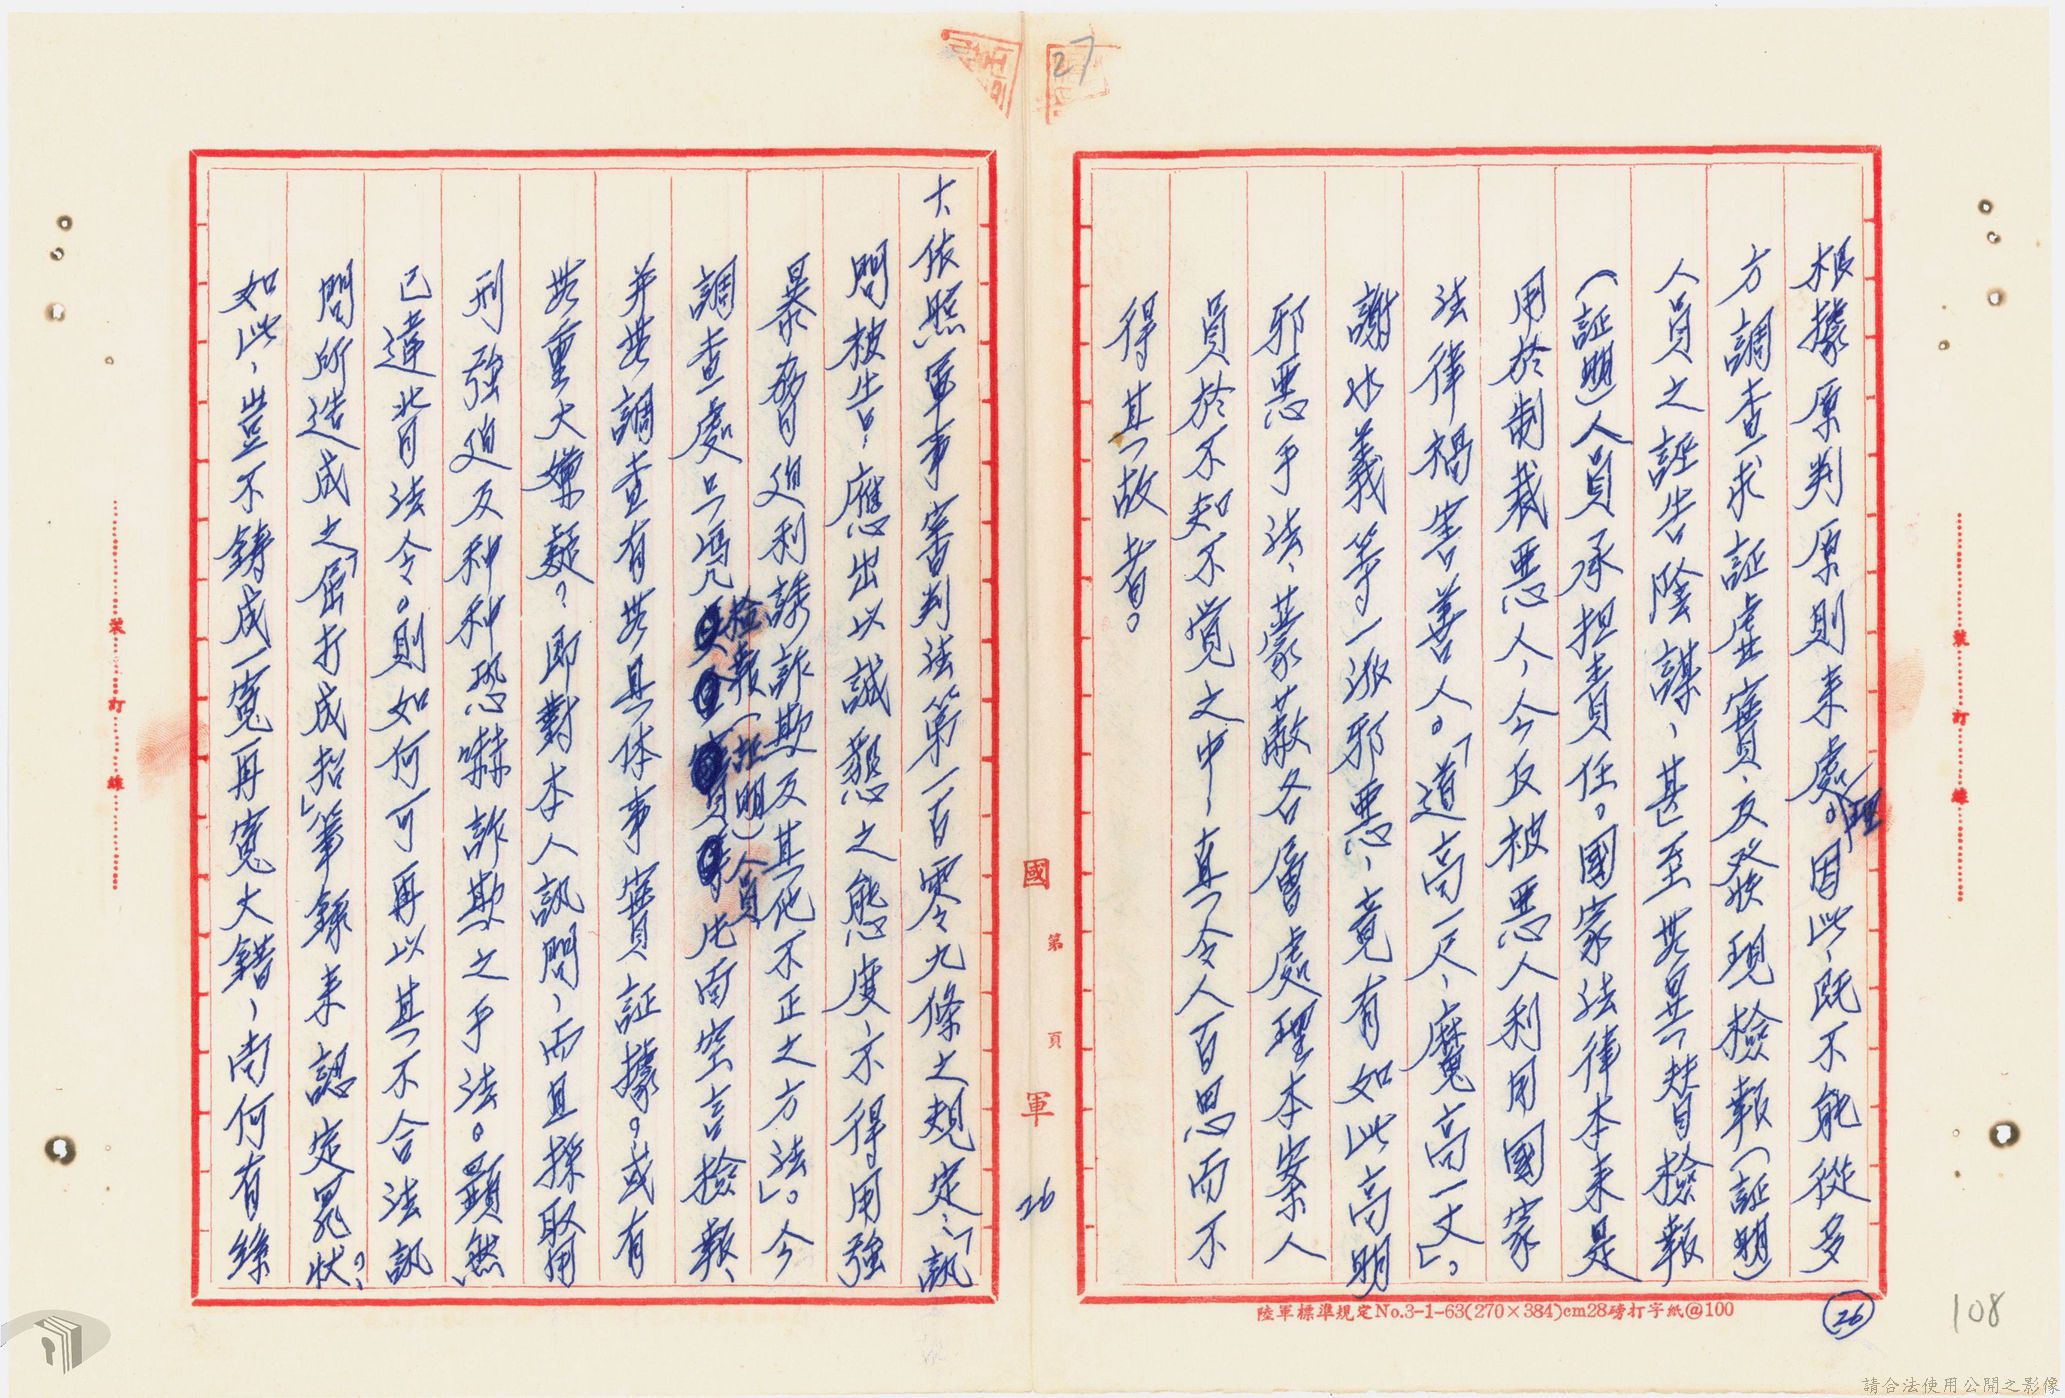 27
根據原判原則来處理。因此、既不能從多
方調查求証虛實、及發現檢報(証明)
人員之誣告陰謀、甚至無異共替檢報
(証明)人員承担責任。國家法律本来是
用於制裁惡人、今反被惡人利用國家
法律禍害善人。「道高一尺、魔高一丈」。
謝水義等一派邪惡、竟有如此高明
邪惡手法、蒙蔽各層處理本案人
員於不知不覺之中、真令人百思而不
得其故者。
陸軍標準規定No.3-1-63(270×384)cm28磅打字紙@100
26
108
裝訂線
國軍
第 頁
26
六、依照軍事審判法第一百零九條之規定:「訊
問被告、應出以誠懇之態度、亦得用強
暴脅迫利誘詐欺及其他不正之方法」。今
調查處只馮几檢報(証明)人員片面空言檢報、
并無調查有無具体事實証據。或有
無重大嫌疑?即對本人訊問、而且採取用
刑強迫及种种恐嚇詐欺之手法。顯然
已違背法令。則如何可再以其不合法訊
問所造成之「屈打成招」筆錄来認定罪狀?
如此、豈不鑄成一寃再寃大錯、尚何有絲
裝訂線
請合法使用公開之影像